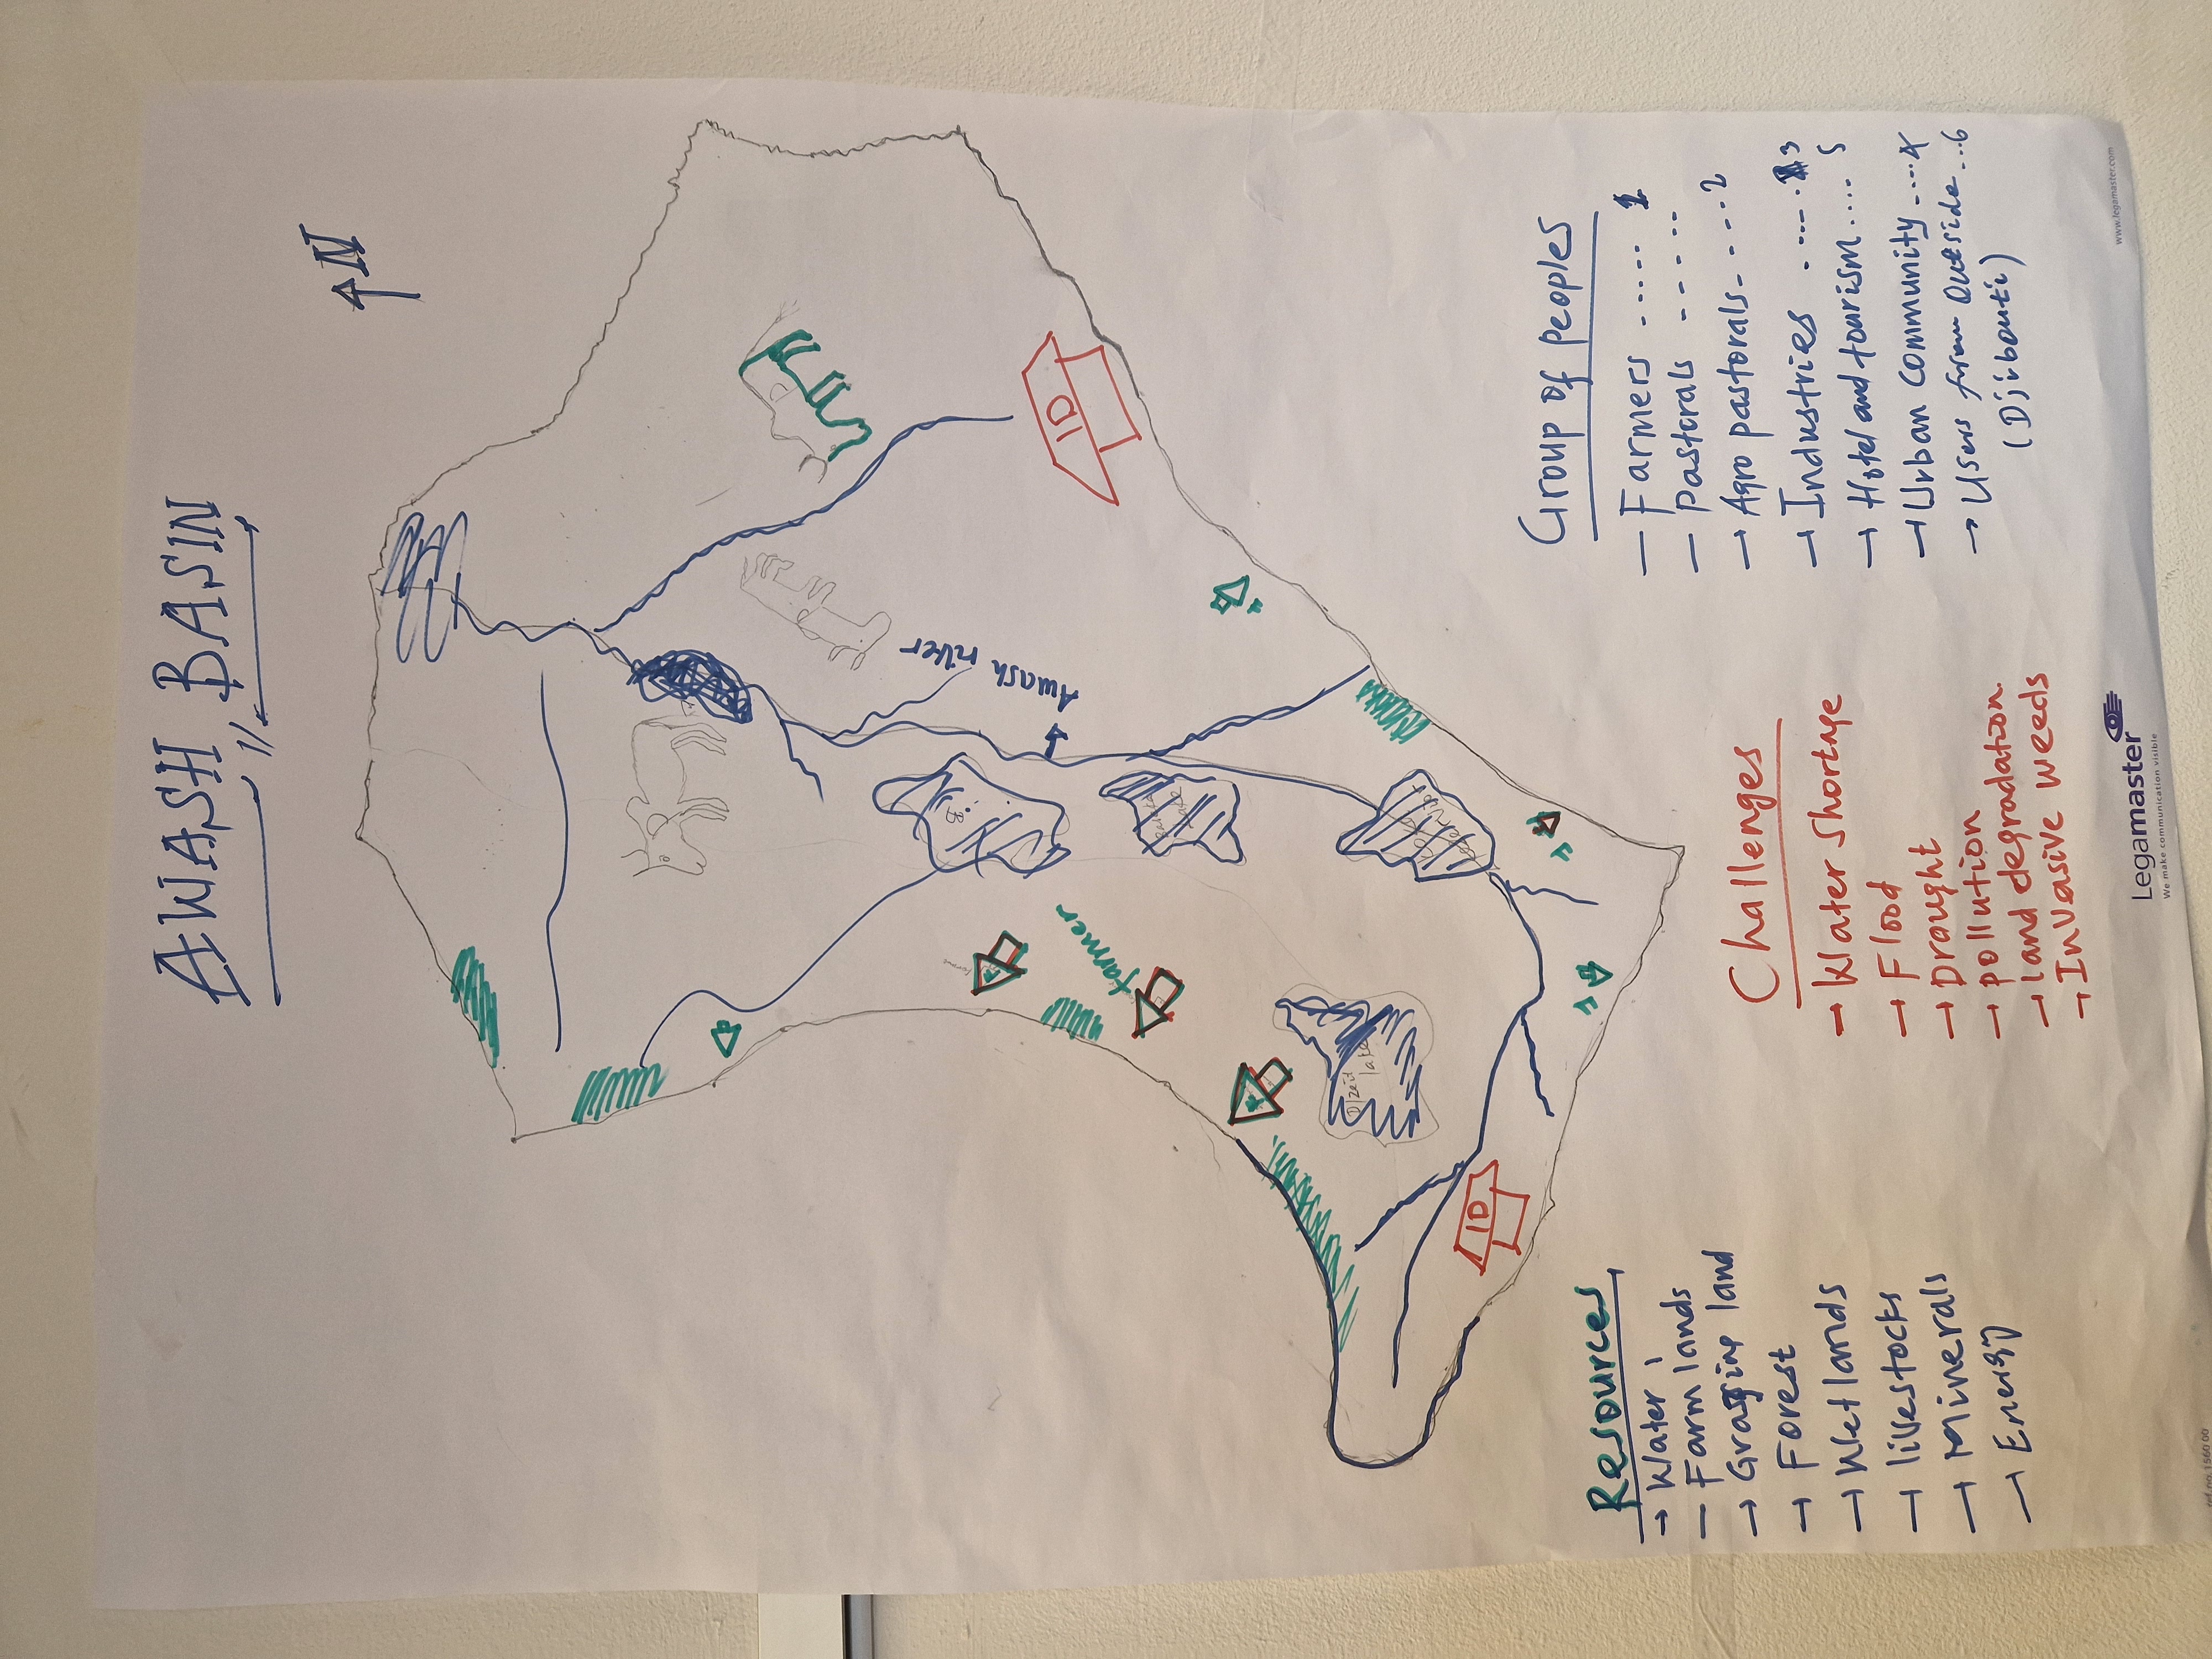 AWASH BASIN
N
ID
Awash river
farmer
ID
Resources
→ Water
— Farm lands
→ Grazing land
→ Forest
→ Wetlands
→ livestocks
→ Minerals
→ Energy
Challenges
→ Water shortage
→ Flood
→ Drought
→ pollution
→ land degradation
→ Invasive weeds
Group of peoples
— Farmers ...... 1
— Pastorals ------
→ Agro pastorals ----2
→ Industries ----- 3
→ Hotel and tourism..... 5
→ Urban Community ....4
→ Users from Outside...6
(Djibouti)
Legamaster
We make communication visible
www.legamaster.com